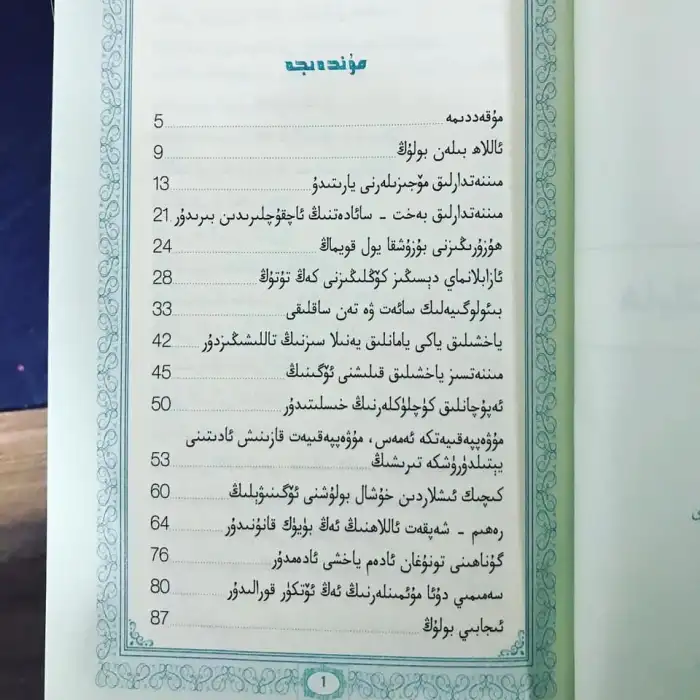 مۇندەرىجە
مۇقەددىمە 5
ئاللاھ بىلەن بولۇڭ 9
مىننەتدارلىق مۆجىزىلەرنى يارىتىدۇ 13
مىننەتدارلىق بەخت - سائادەتنىڭ ئاچقۇچلىرىدىن بىرىدۇر 21
ھۇزۇرىڭىزنى بۇزۇشقا يول قويماڭ 24
ئازابلانماي دېسىڭىز كۆڭلىڭىزنى كەڭ تۇتۇڭ 28
بىئولوگىيەلىك سائەت ۋە تەن ساقلىقى 33
ياخشىلىق ياكى يامانلىق يەنىلا سىزنىڭ تاللىشىڭىزدۇر 42
مىننەتسىز ياخشىلىق قىلىشنى ئۆگىنىڭ 45
ئەپۇچانلىق كۈچلۈكلەرنىڭ خىسلىتىدۇر 50
مۇۋەپپەقىيەتكە ئەمەس، مۇۋەپپەقىيەت قازىنىش ئادىتىنى
يېتىلدۈرۈشكە تىرىشىڭ 53
كىچىك ئىشلاردىن خۇشال بولۇشنى ئۆگىنىۋېلىڭ 60
رەھىم - شەپقەت ئاللاھنىڭ ئەڭ بۈيۈك قانۇنىدۇر 64
گۇناھىنى تونۇغان ئادەم ياخشى ئادەمدۇر 76
سەمىمىي دۇئا مۇئمىنلەرنىڭ ئەڭ ئۆتكۈر قورالىدۇر 80
ئىجابىي بولۇڭ 87
1